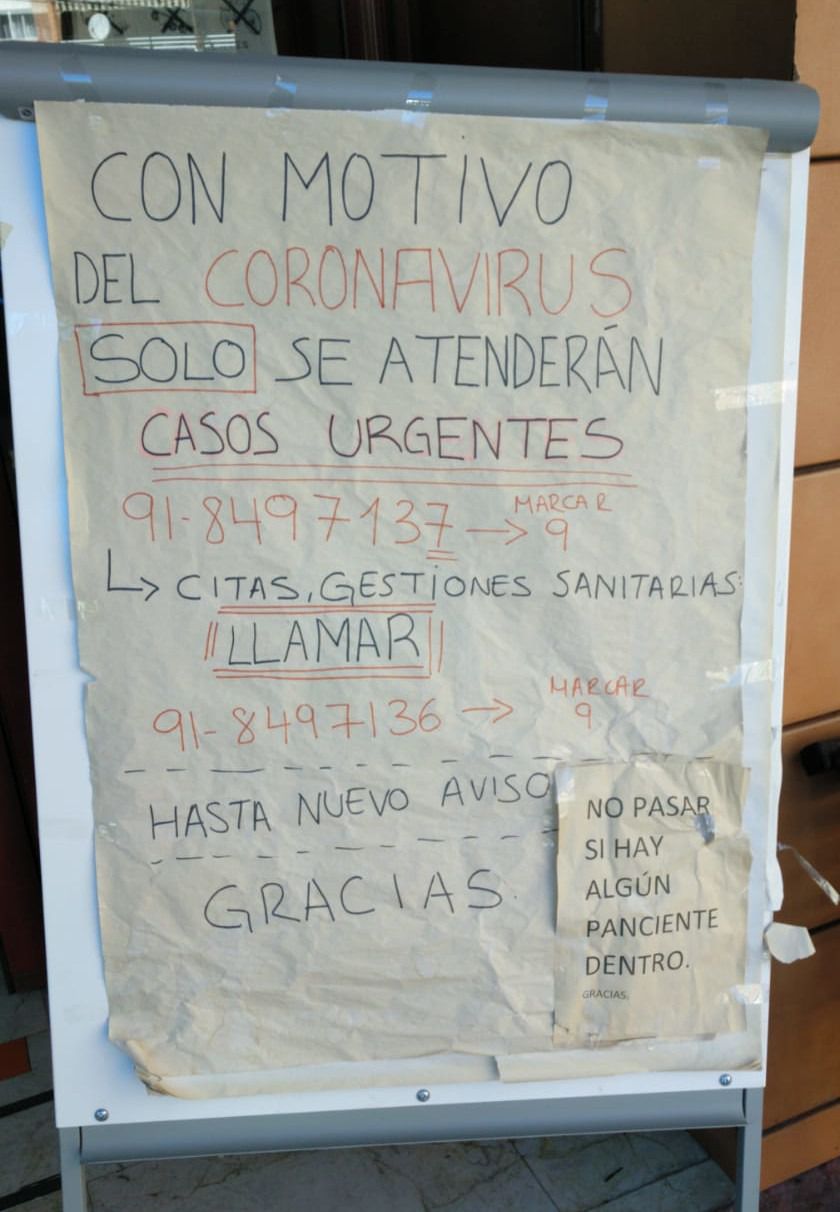 CON MOTIVO
DEL CORONAVIRUS
SOLO SE ATENDERÁN
CASOS URGENTES
91-8497137 → MARCAR 9
↳ CITAS, GESTIONES SANITARIAS:
LLAMAR
91-8497136 → MARCAR 9
HASTA NUEVO AVISO
GRACIAS.
NO PASAR
SI HAY
ALGÚN
PANCIENTE
DENTRO.
GRACIAS.